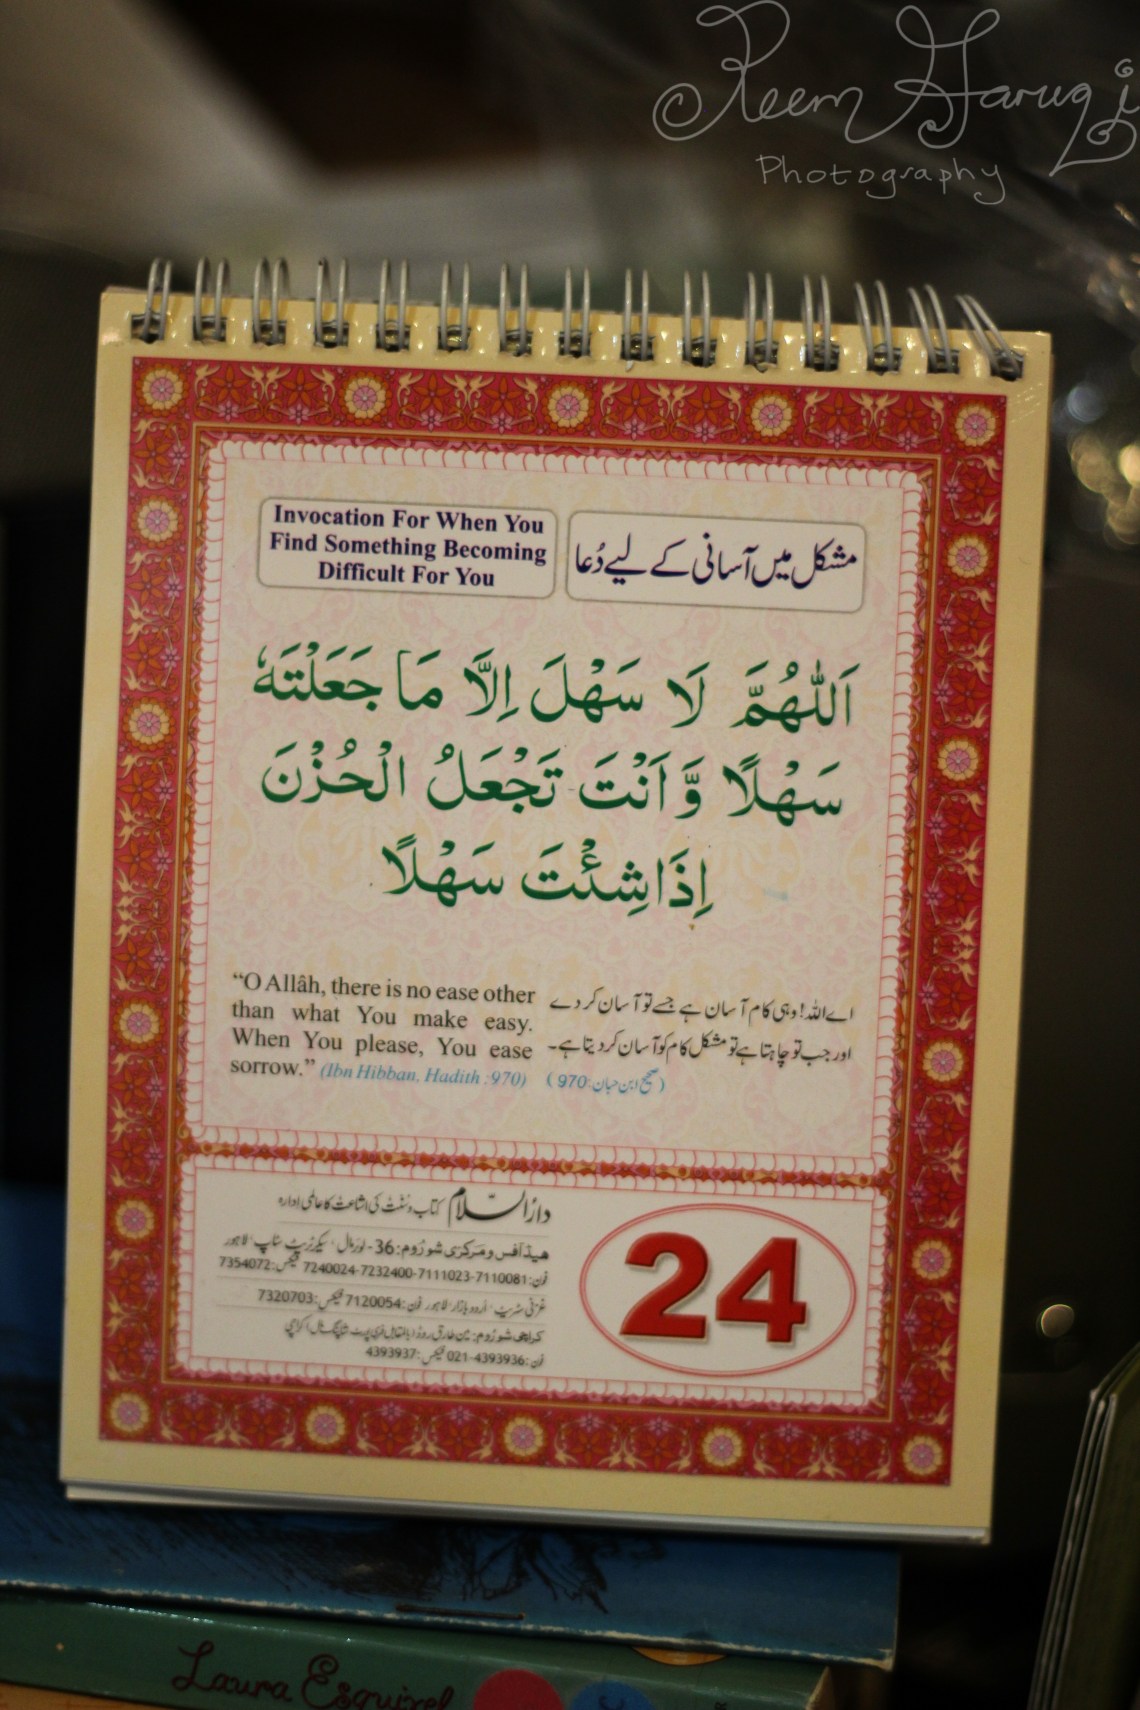 Reem Haruqi
Photography
Invocation For When You
Find Something Becoming
Difficult For You
مشکل میں آسانی کے لیے دُعا
اَللّٰهُمَّ لَا سَهْلَ اِلَّا مَا جَعَلْتَهٗ
سَهْلًا وَّاَنْتَ تَجْعَلُ الْحُزْنَ
اِذَا شِئْتَ سَهْلًا
“O Allâh, there is no ease other
than what You make easy.
When You please, You ease
sorrow.” (Ibn Hibban, Hadith :970)
اے اللہ! وہی کام آسان ہے جسے تو آسان کر دے
اور جب تو چاہتا ہے تو مشکل کام کو آسان کر دیتا ہے۔
(صحیح ابن حبان: 970)
دارُالسّلام کتاب و سُنّت کی اشاعت کا عالمی ادارہ
ہیڈ آفس و مرکزی شوروم: 36- لوئر مال، سیکرٹریٹ سٹاپ، لاہور
فون: 7110081-7111023-7232400-7240024 فیکس: 7354072
غزنی سٹریٹ، اُردو بازار، لاہور فون: 7120054 فیکس: 7320703
کراچی شوروم: مین طارق روڈ (بالمقابل فری پورٹ شاپنگ مال) کراچی
فون: 021-4393936 فیکس: 4393937
24
Laura Esquivel